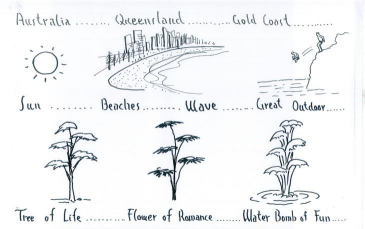 Australia ........ Queensland ........... Gold Coast ..........
Sun ........ Beaches ......... Wave ....... Great Outdoor .....
Tree of Life .......... Flower of Romance ....... Water Bomb of Fun .....